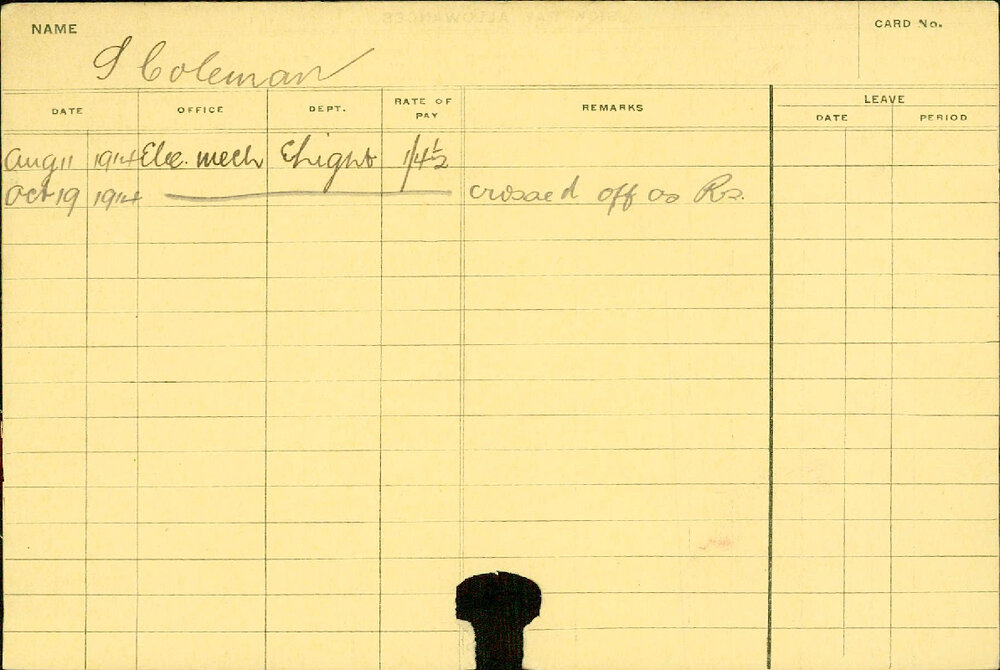 NAME
CARD No.
S Coleman
DATE OFFICE DEPT. RATE OF PAY REMARKS LEAVE
DATE PERIOD
Aug 11 1914 Elec. mech Elight 1/4½
Oct 19 1914 crossed off as Rs.